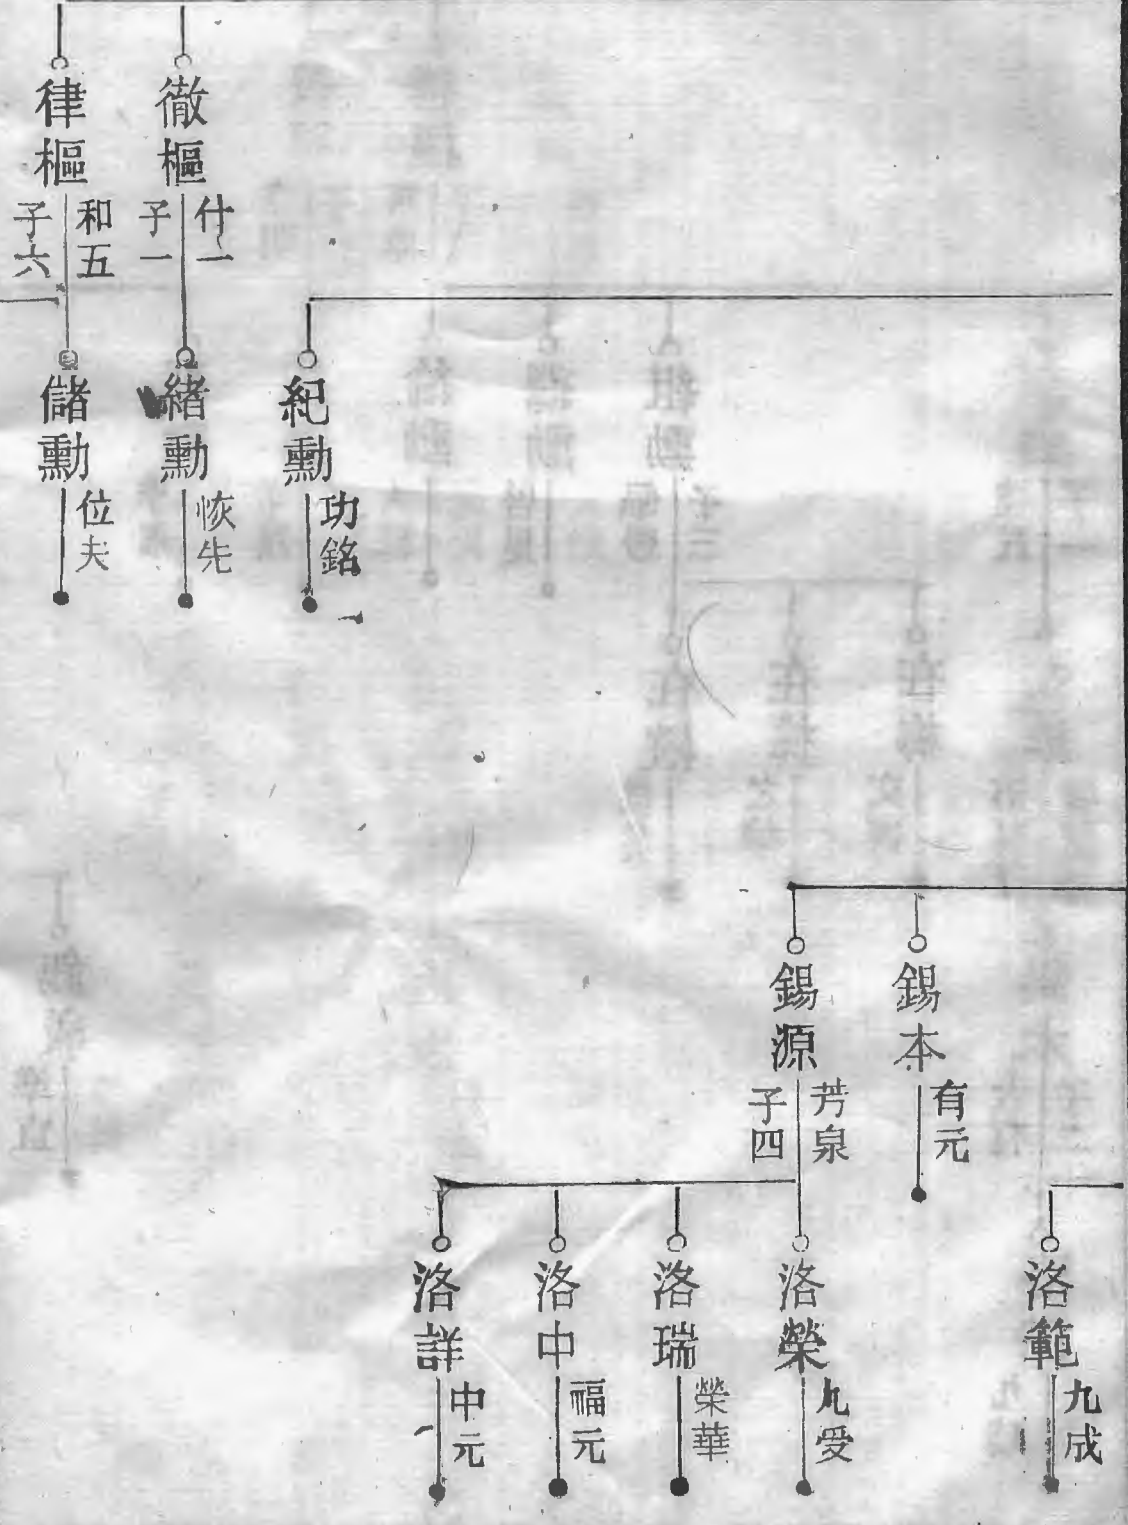 徹樞
什一
子一
律樞
和五
子六
紀勳
功銘
緒勳
恢先
儲勳
位夫
錫本
有元
錫源
芳泉
子四
洛範
九成
洛榮
九受
洛瑞
榮華
洛中
福元
洛詳
中元